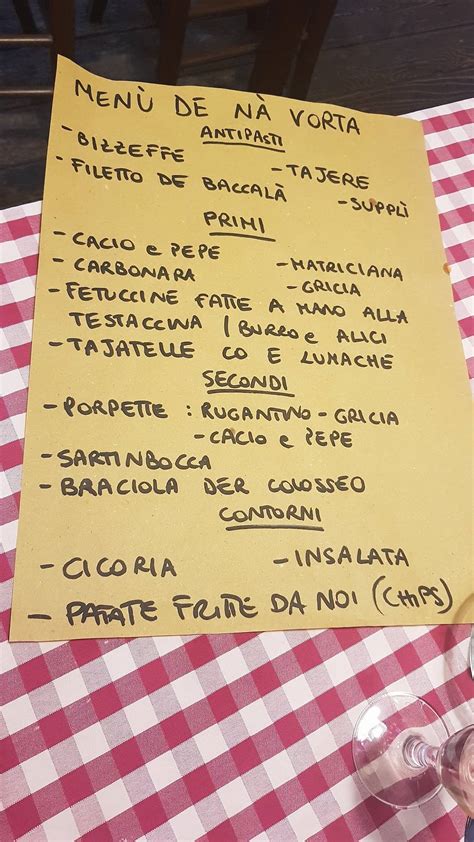 MENÙ DE NÀ VORTA
ANTIPASTI
- BIZZEFFE
- TAJERE
- FILETTO DE BACCALÀ
- SUPPLÌ
PRIMI
- CACIO e PEPE
- MATRICIANA
- CARBONARA
- GRICIA
- FETUCCINE FATTE A MANO ALLA
TESTACCINA / BURRO e ALICI
- TAJATELLE CO E LUMACHE
SECONDI
- PORPETTE : RUGANTINO - GRICIA
- CACIO e PEPE
- SARTINBOCCA
- BRACIOLA DER COLOSSEO
CONTORNI
- CICORIA
- INSALATA
- PATATE FRITTE DA NOI (CHIPS)